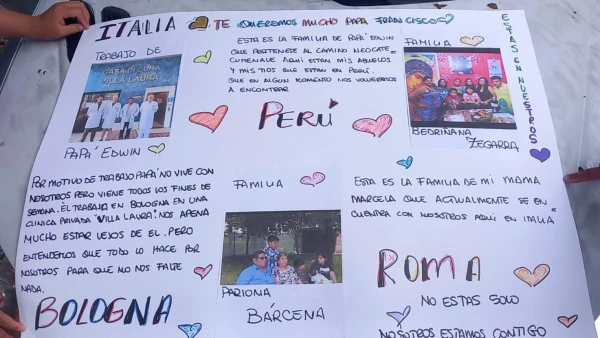 ITALIA
TE QUEREMOS MUCHO PAPA FRANCISCO
ESTAS EN NUESTROS
TRABAJO DE
CASA DI CURA
VILLA LAURA
PAPA' EDWIN
ESTA ES LA FAMILIA DE PAPA' EDWIN
QUE PERTENESE AL CAMINO NEOCATE
CUMENALE AQUI ESTAN MIS ABUELOS
Y MIS TIOS QUE ESTAN EN PERÚ.
QUE EN ALGUN MOMENTO NOS VOLVEREMOS
A ENCONTRAR
FAMILIA
BEDRIÑANA
ZEGARRA
PERÚ
POR MOTIVO DE TRABAJO PAPA' NO VIVE CON
NOSOTROS PERO VIENE TODOS LOS FINES DE
SEMANA. ÉL TRABAJA EN BOLOGNA EN UNA
CLINICA PRIVADA "VILLA LAURA" NOS APENA
MUCHO ESTAR LEJOS DE EL. PERO
ENTENDEMOS QUE TODO LO HACE POR
NOSOTROS PARA QUE NO NOS FALTE
NADA.
BOLOGNA
FAMILIA
PARIONA
BÁRCENA
ESTA ES LA FAMILIA DE MI MAMA
MARCELA QUE ACTUALMENTE SE EN
CUENTRA CON NOSOTROS AQUI EN ITALIA
ROMA
NO ESTAS SOLO
NOSOTROS ESTAMOS CONTIGO